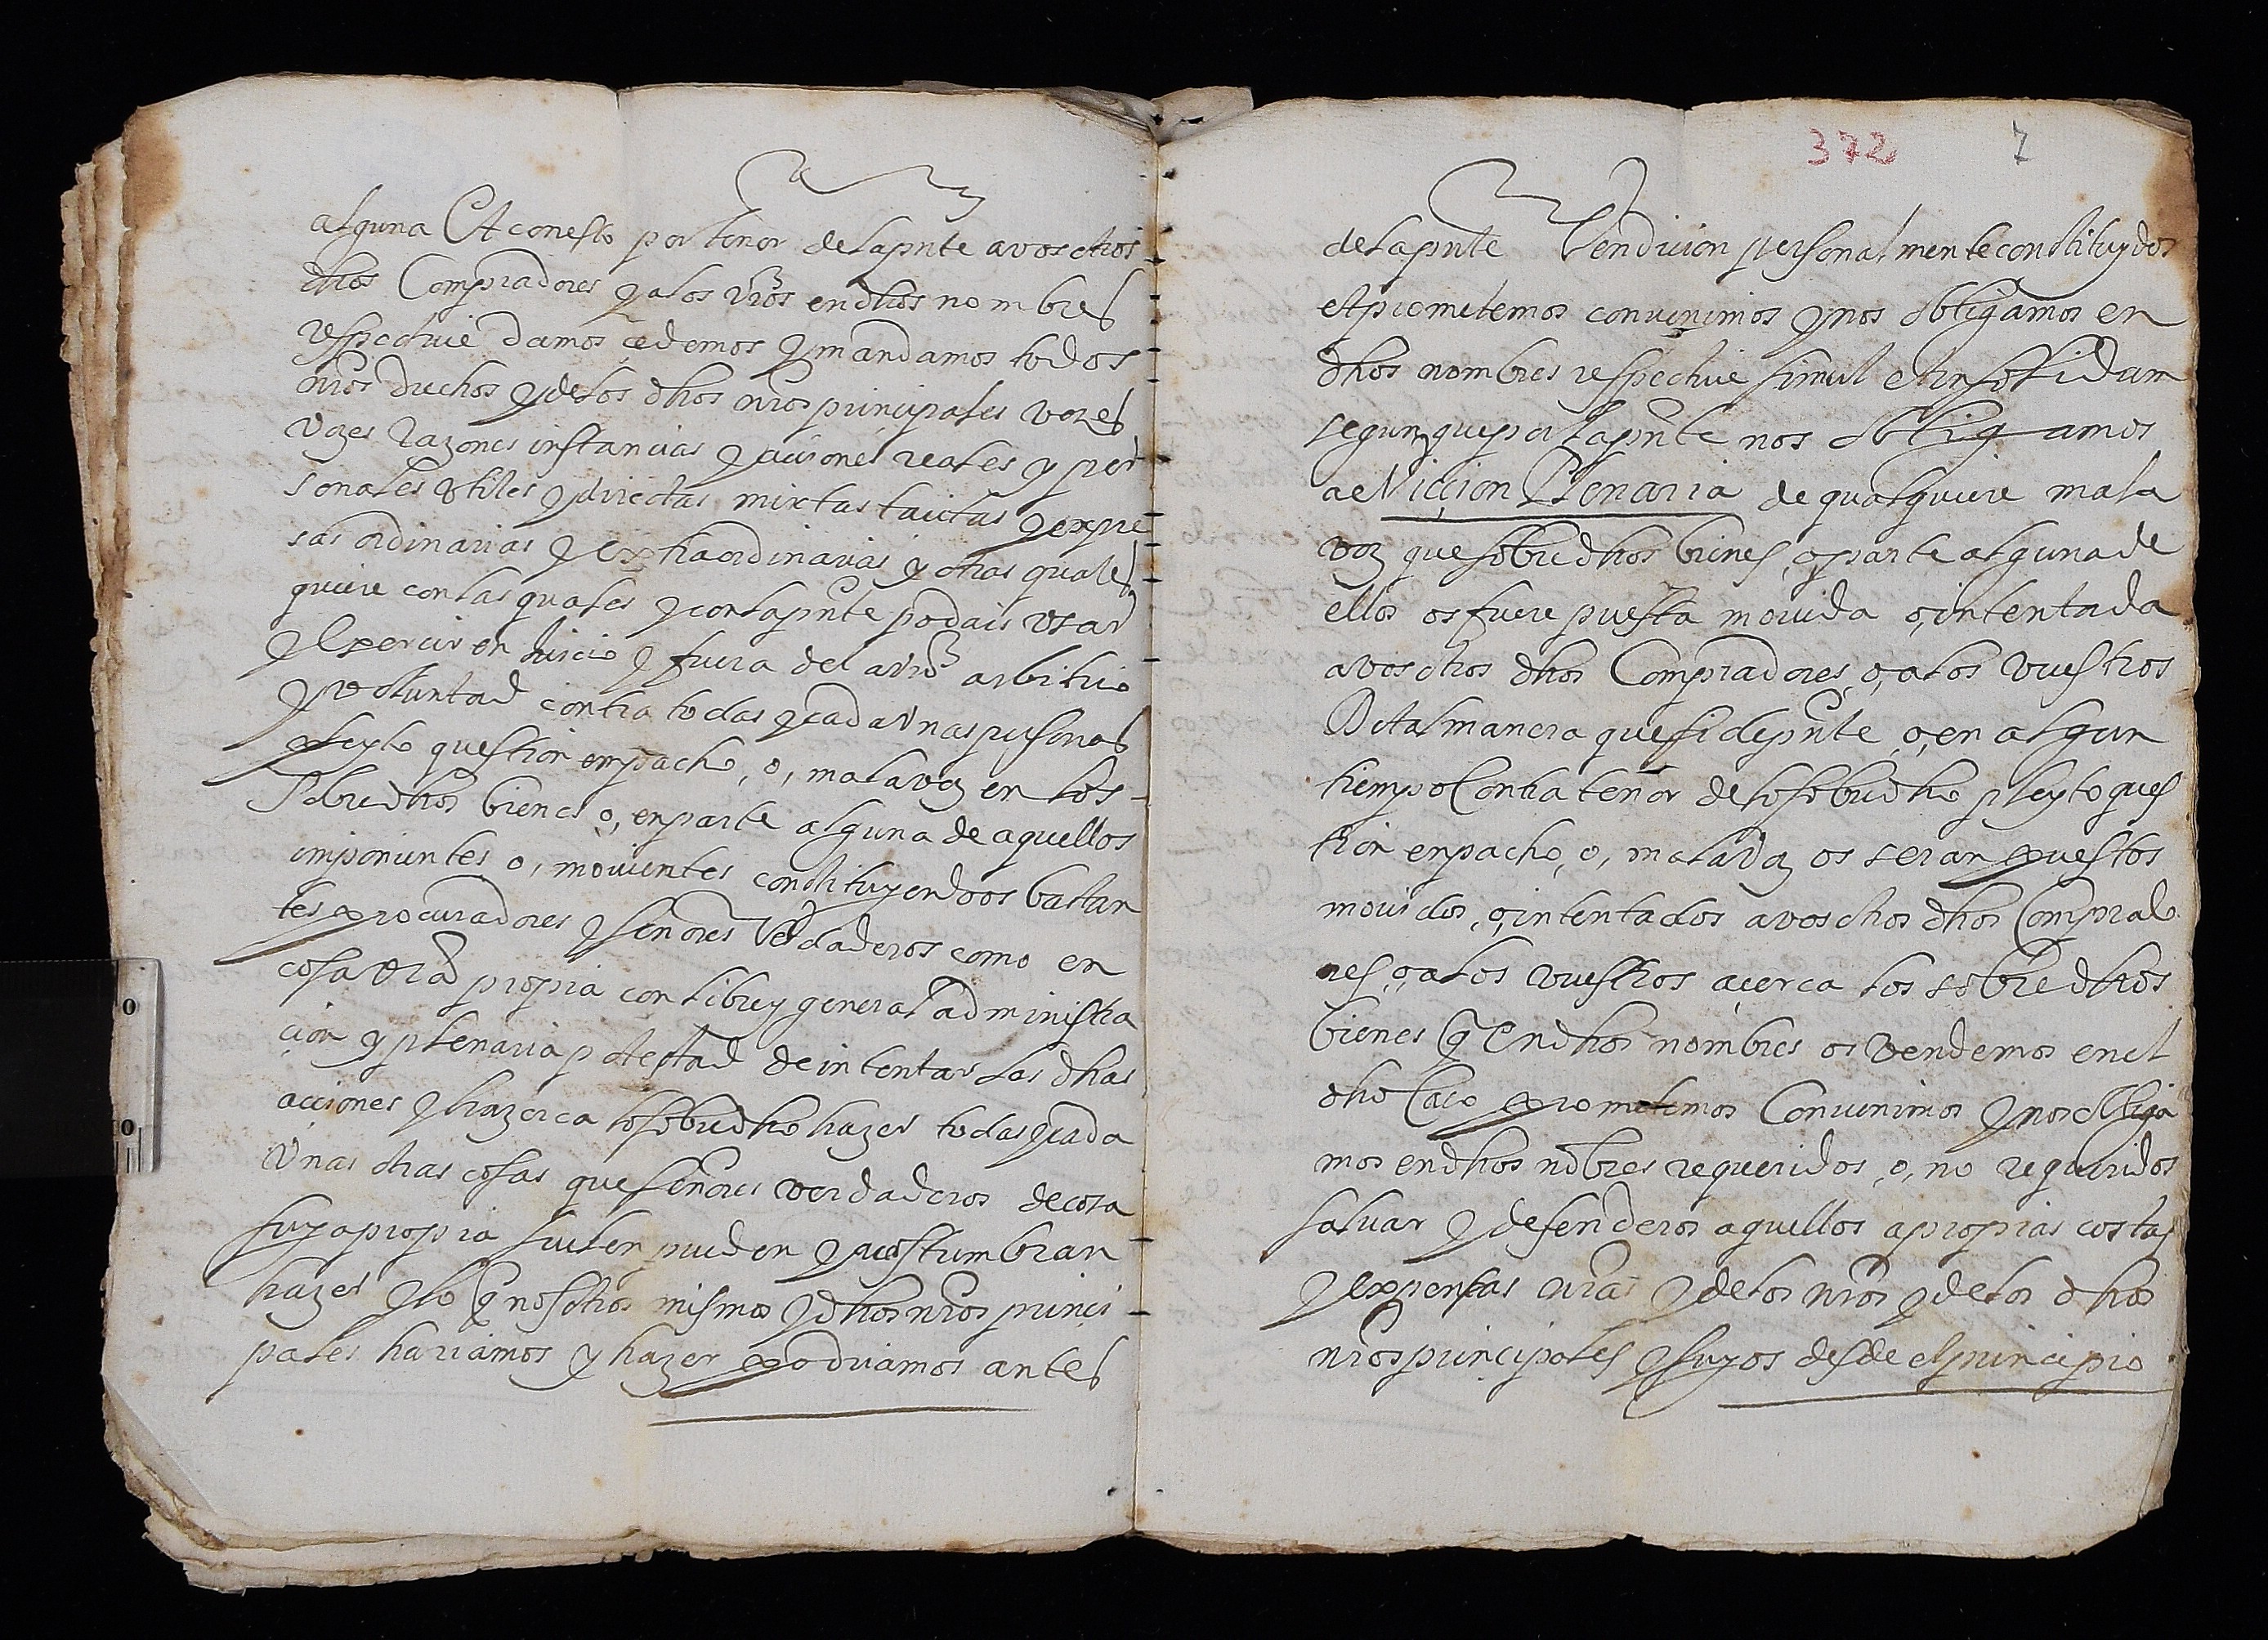 alguna Et con esto por tenor de la pnte a vosotros
dhos Compradores y a los vros en dhos nombres
respective damos çedemos y mandamos todos
nros drechos y de los dhos nros principales vozes
vozes Razones instancias y acciones reales y per
sonales vtiles y directas mixtas tacitas y expre
sas ordinarias y extraordinarias y otras quales
quiere con las quales y con la pnte podais vsar
y Exercir en Juicio y fuera del a vro arbitrio
y voluntad contra todas y cada Vnas personas
pleyto question empacho, o, mala voz en los
Sobredhos bienes o, en parte alguna de aquellos
imponientes o, movientes constituyendoos bastan
tes procuradores y señores Verdaderos como en
cosa vra propia con libre y general administra
çion y plenaria potestad de intentar las dhas
acçiones y hazerca lo sobredho hazer todas y cada
Vnas otras cosas que señores verdaderos de cosa
suya propia suelen pueden y acostumbran
hazer y lo q nosotros mismos y dhos nros princi
pales hariamos y hazer podriamos antes
372 7
de la pnte Vendicion personalmente constituydos
et prometemos convenimos y nos obligamos en
dhos nombres respective simul et in solidum
segun que por la pnte nos obligamos
a eVicçion Plenaria de qualquiere mala
voz que sobre dhos bienes, o, parte alguna de
ellos os fuere puesta mouida o, intentada
a vosotros dhos Compradores, o, a los vuestros
De tal manera que si de pnte, o, en algun
tiempo Contra tenor de lo sobredho pleyto ques
tion enpacho, o, mala voz os seran puestos
mouidos, o, intentados a vosotros dhos Comprado
res, o, a los vuestros açerca los sobredhos
bienes q En dhos nombres os vendemos en el
dho Caso prometemos Convenimos y nos obliga
mos en dhos nobres requeridos, o, no requeridos
saluar y defenderos aquellos a propias costas
y expensas nras y de los nros y de los dhos
nros principales y suyos desde el principio